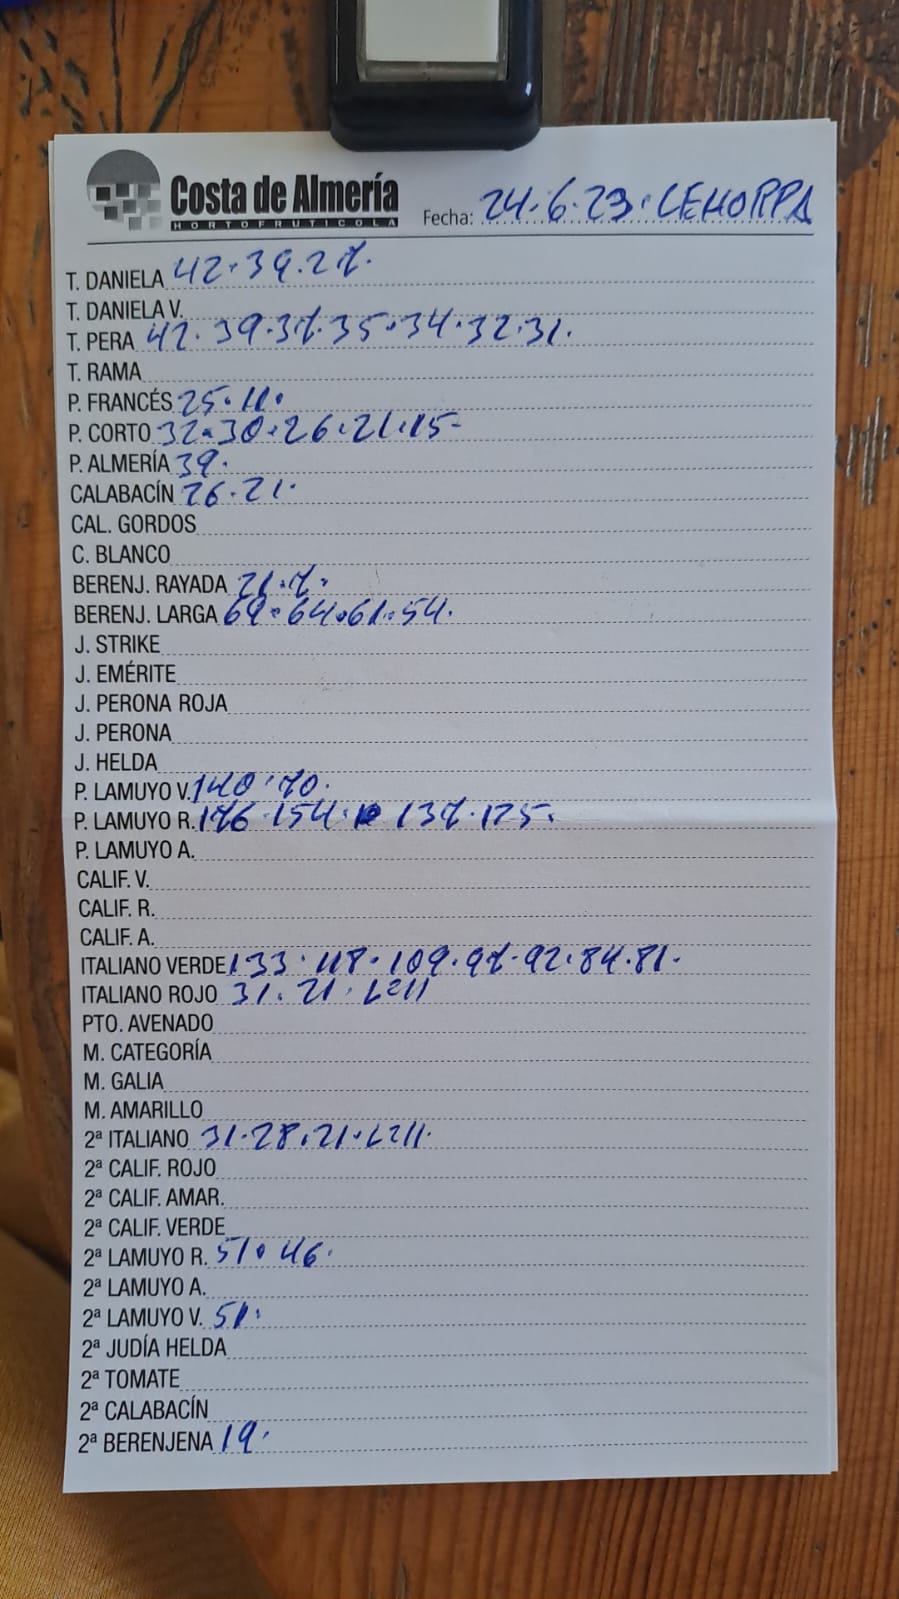 Costa de Almería
HORTOFRUTICOLA
Fecha: 24.6.23. CEHORPA
T. DANIELA 42.39.27.
T. DANIELA V.
T. PERA 42.39.37.35.34.32.31.
T. RAMA
P. FRANCÉS 25.11.
P. CORTO 32.30.26.21.15-
P. ALMERÍA 39.
CALABACÍN 26.21.
CAL. GORDOS
C. BLANCO
BERENJ. RAYADA 21.7.
BERENJ. LARGA 69.64.61.54.
J. STRIKE
J. EMÉRITE
J. PERONA ROJA
J. PERONA
J. HELDA
P. LAMUYO V. 140.70.
P. LAMUYO R. 176.154. 137.125.
P. LAMUYO A.
CALIF. V.
CALIF. R.
CALIF. A.
ITALIANO VERDE 133.118.109.97.92.84.81.
ITALIANO ROJO 31.21.L=11
PTO. AVENADO
M. CATEGORÍA
M. GALIA
M. AMARILLO
2ª ITALIANO 31.28.21.L=11.
2ª CALIF. ROJO
2ª CALIF. AMAR.
2ª CALIF. VERDE
2ª LAMUYO R. 51.46.
2ª LAMUYO A.
2ª LAMUYO V. 51.
2ª JUDÍA HELDA
2ª TOMATE
2ª CALABACÍN
2ª BERENJENA 19.